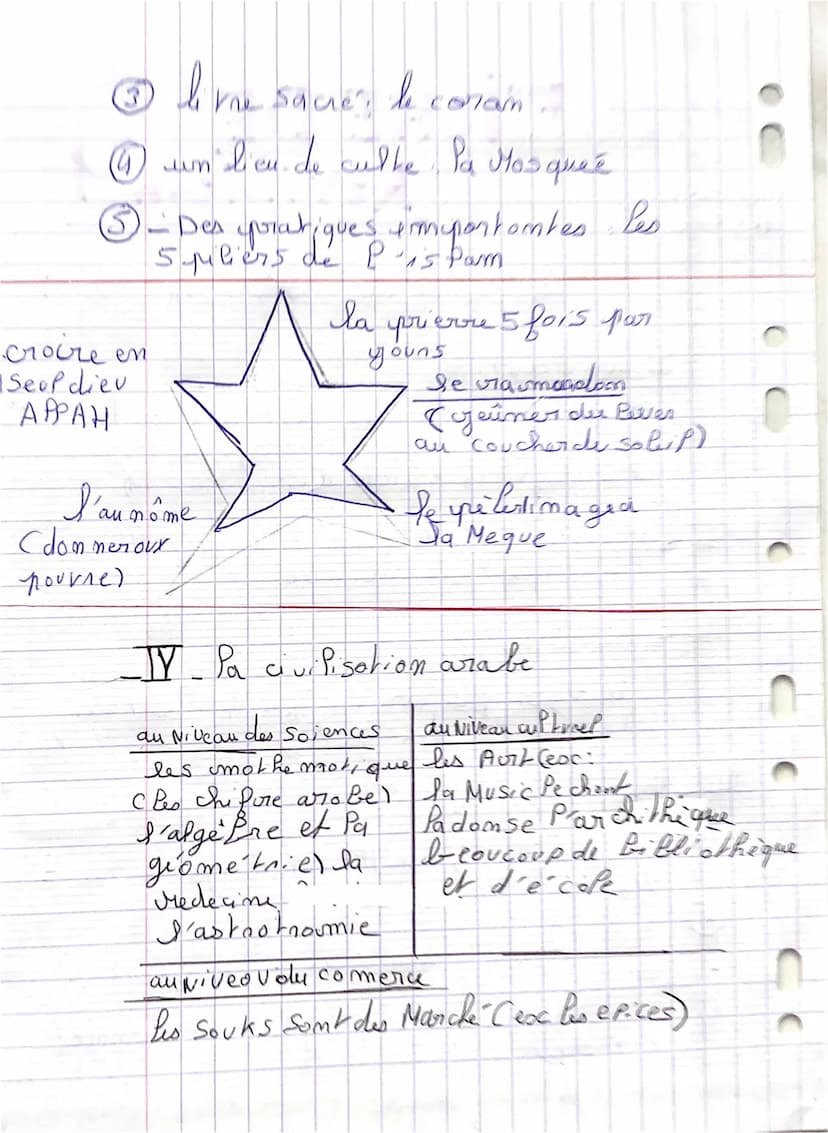 ③ livre sacré: le coran.
④ un lieu de culte. la Mosqueé
⑤ - Des pratiques importantes les
5 piliers de l'islam
la prierre 5 fois par
jouns
croire en
1 seul dieu
ALLAH
le ramadan
(jeûner du lever
au coucher de soleil)
l'aunôme
(donner aux
pouvre)
le pèlerimage a
la Meque
IV - la civilisation arabe
au Niveau des Sciences
les mathematique
(les chifire arabe)
l'algèbre et la
géométrie) la
medecine
l'astrotnoumie
au Niveau culturel
les Art (ex:
la Music le chant
la danse l'archithèque
beaucoup de bibliothèque
et d'école
au Niveau du comerce
les souks sont des Marché (ex les epices)